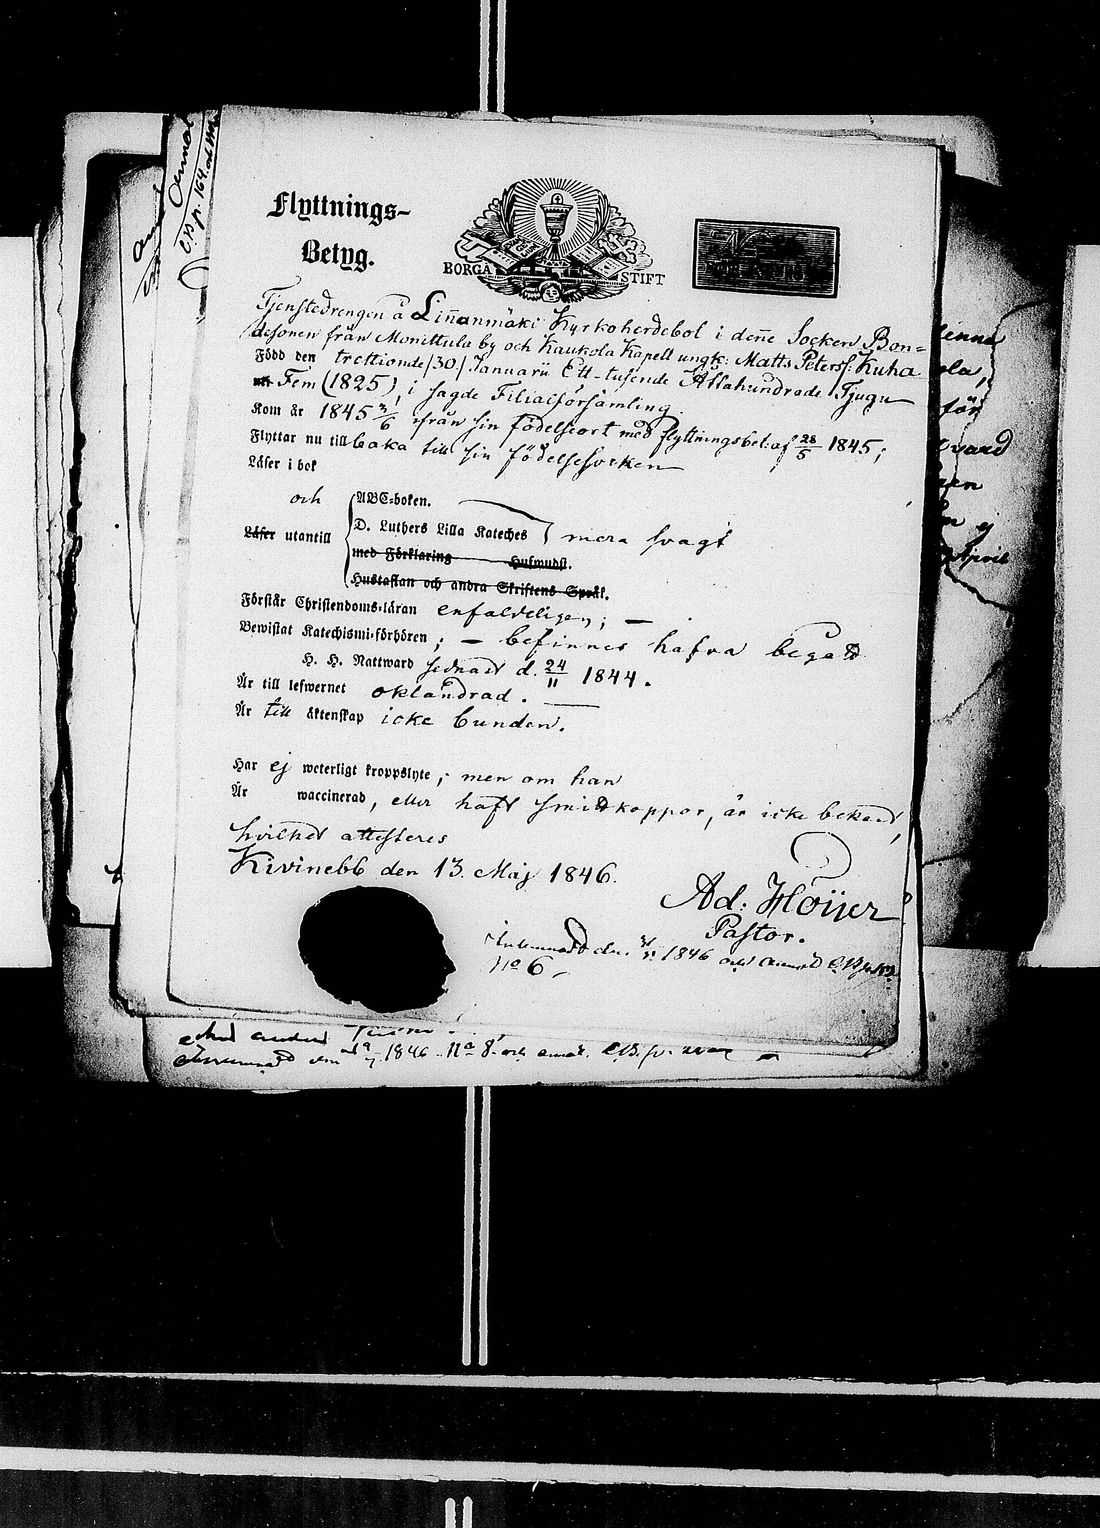 Flyttnings-
Betyg.
BORGÅ STIFT
Tjenstedrengen å Linanmäki Kyrkoherdebol i dene Socken Bon=
desonen från Monittula by och Kaukola Kapell ungk: Matts Peterss: Kuha
Född den trettionde /30/ Januarii Ett-tusende Åttahundrade Tjugu
Fem (1825), i sagde Filialförsamling.
Kom år 1845 3/6 ifrån sin födelseort med flyttningsbet: af 28/5 1845;
Flyttar nu till baka till sin födelsesocken
Läser i bok
och
ABC-boken.
Läser utantill
D. Luthers Lilla Kateches
mera svagt
med Förklaring Hufwudst.
Hustaflan och andra Skriftens Språk.
Förstår Christendoms-läran enfaldeligen; —
Bewistat Katechismi-förhören; — befinnes hafva begått
H. H. Nattward sednast d. 24/11 1844.
Är till lefwernet oklandrad.
Är till äktenskap icke bunden.
Har ej weterligt kroppslyte; men om han
Är waccinerad, eller haft smittkoppor, är icke bekant,
hvilket attesteres
Kivinebb den 13. Maj 1846.
Ad: Höijer
Pastor.
1846
No 6
denna
April
1846 No 8